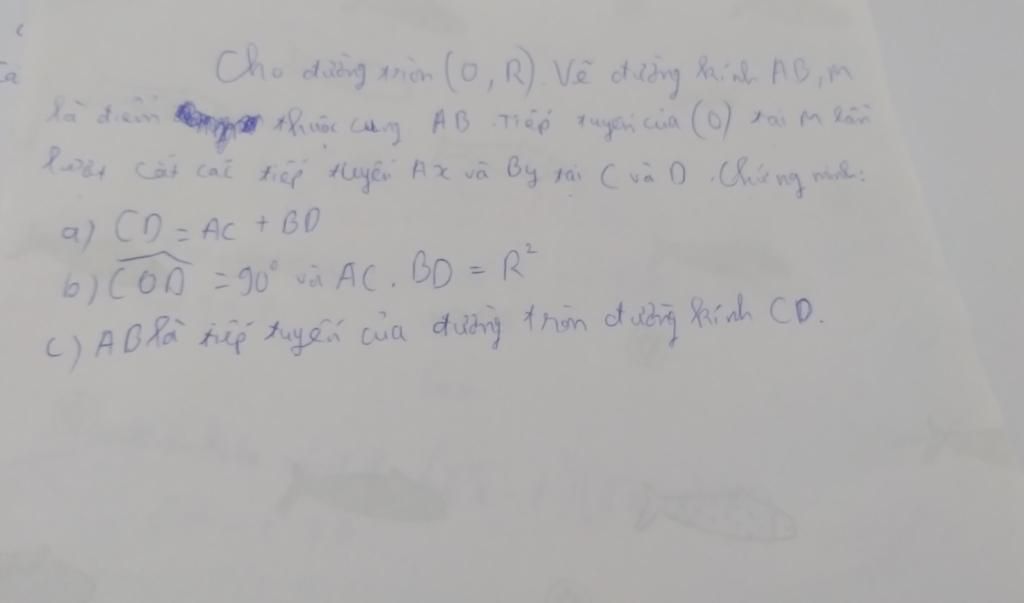 Cho đường tròn (O, R). Vẽ đường kính AB, M
là điểm thuộc cung AB. Tiếp tuyến của (O) tại M lần
lượt cắt các tiếp tuyến Ax và By tại C và D. Chứng minh:
a) CD = AC + BD
b) COD = 90° và AC . BD = R²
c) AB là tiếp tuyến của đường tròn đường kính CD.